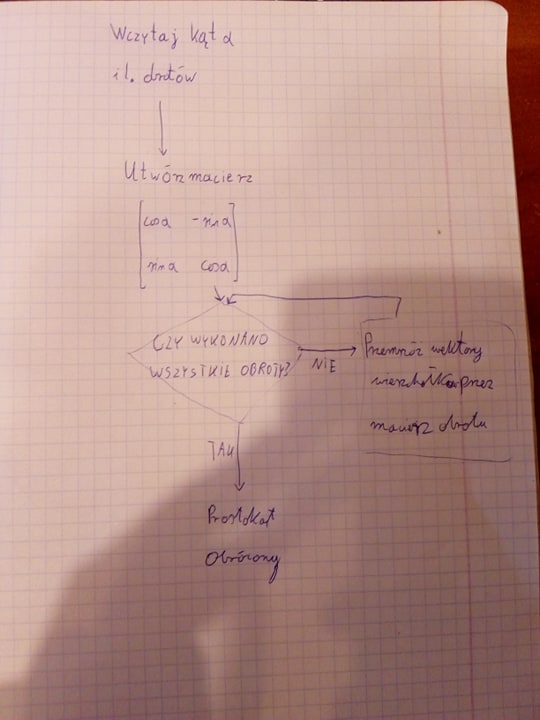 Wczytaj kąt α
i l. obrotów
Utwórz macierz
cosα -sinα
sinα cosα
CZY WYKONANO
WSZYSTKIE OBROTY?
NIE
Przemnóż wektory
wierzchołków przez
macierz obrotu
TAK
Prostokąt
Obrócony